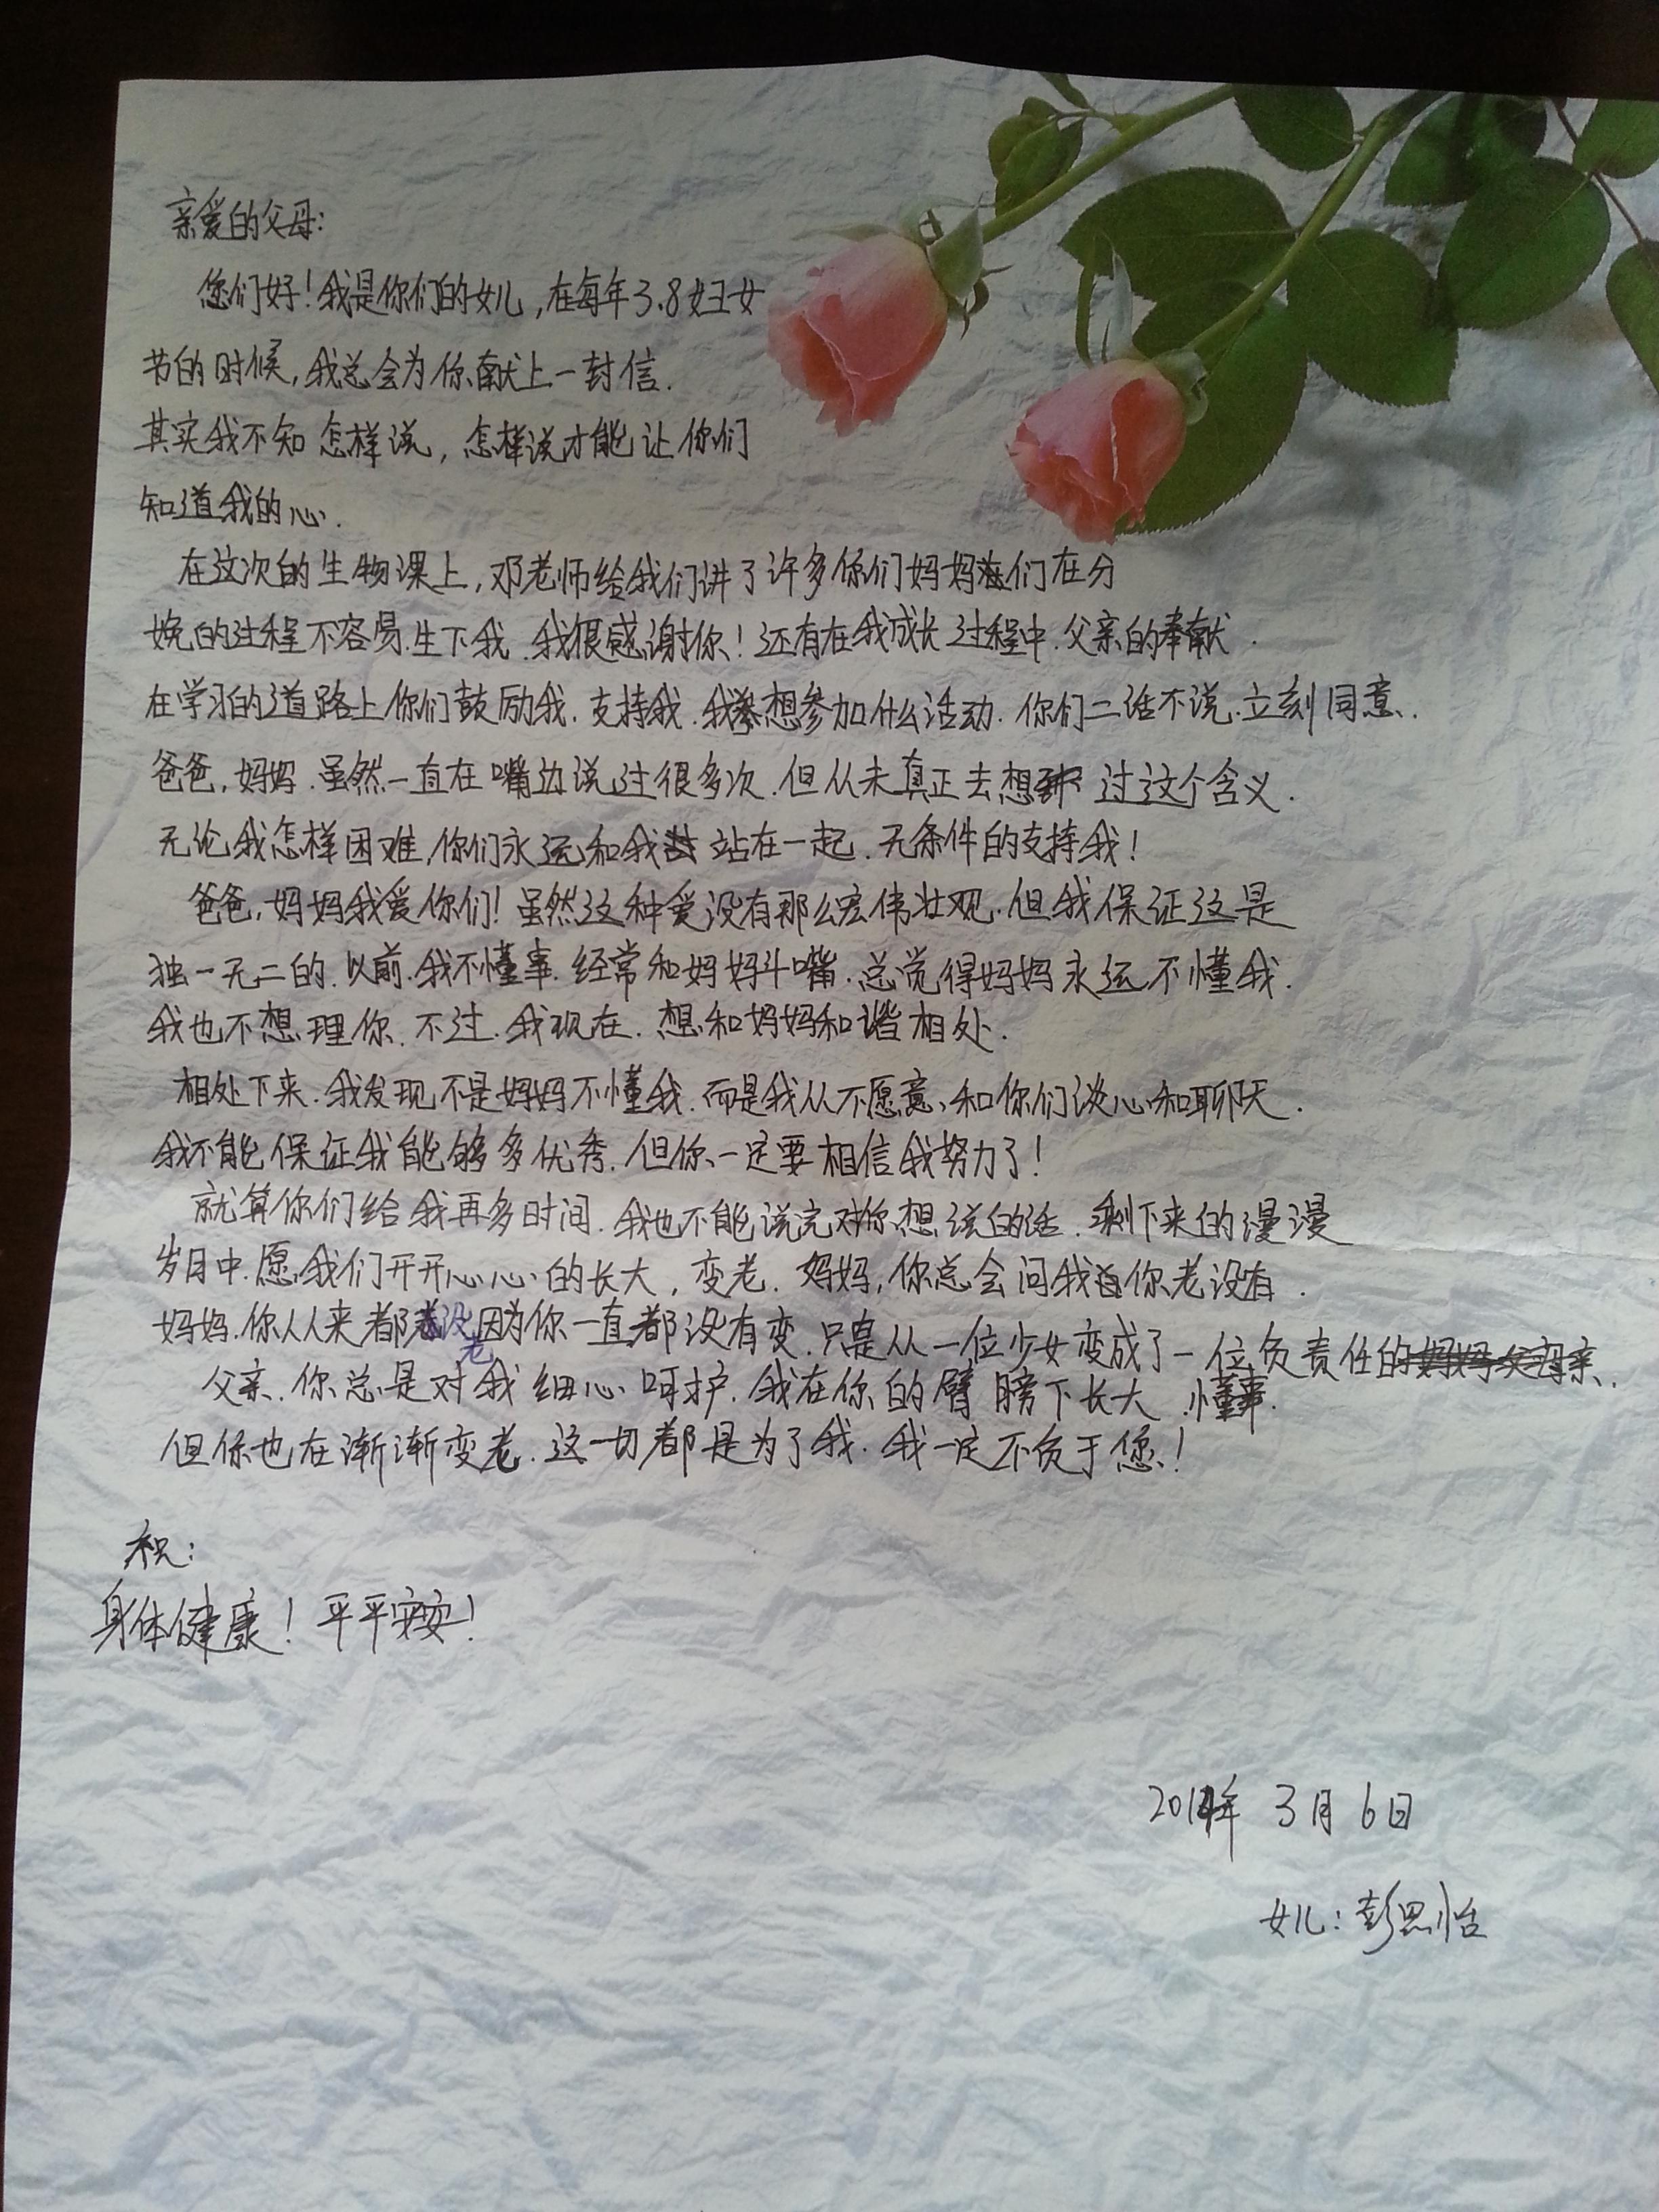 亲爱的父母:
您们好!我是你们的女儿,在每年3.8妇女
节的时候,我总会为你献上一封信.
其实我不知怎样说,怎样说才能让你们
知道我的心.
在这次的生物课上,邓老师给我们讲了许多你们妈妈们在分
娩的过程不容易.生下我.我很感谢你!还有在我成长过程中.父亲的奉献.
在学习的道路上你们鼓励我.支持我.我想参加什么活动.你们二话不说.立刻同意.
爸爸,妈妈.虽然一直在嘴边说过很多次.但从未真正去想过这个含义.
无论我怎样困难,你们永远和我站在一起.无条件的支持我!
爸爸,妈妈我爱你们!虽然这种爱没有那么宏伟壮观.但我保证这是
独一无二的.以前.我不懂事.经常和妈妈斗嘴.总觉得妈妈永远不懂我.
我也不想理你.不过.我现在.想和妈妈和谐相处.
相处下来.我发现不是妈妈不懂我.而是我从不愿意和你们谈心和聊天.
我不能保证我能够多优秀.但你一定要相信我努力了!
就算你们给我再多时间.我也不能说完对你想说的话.剩下来的漫漫
岁月中.愿我们开开心心的长大,变老.妈妈,你总会问我你老没有.
妈妈.你从从来都没老因为你一直都没有变.只是从一位少女变成了一位负责任的母亲.
父亲.你总是对我细心呵护.我在你的臂膀下长大.懂事.
但你也在渐渐变老.这一切都是为了我.我一定不负于您!
祝:
身体健康!平平安安!
2014年3月6日
女儿:彭思怡